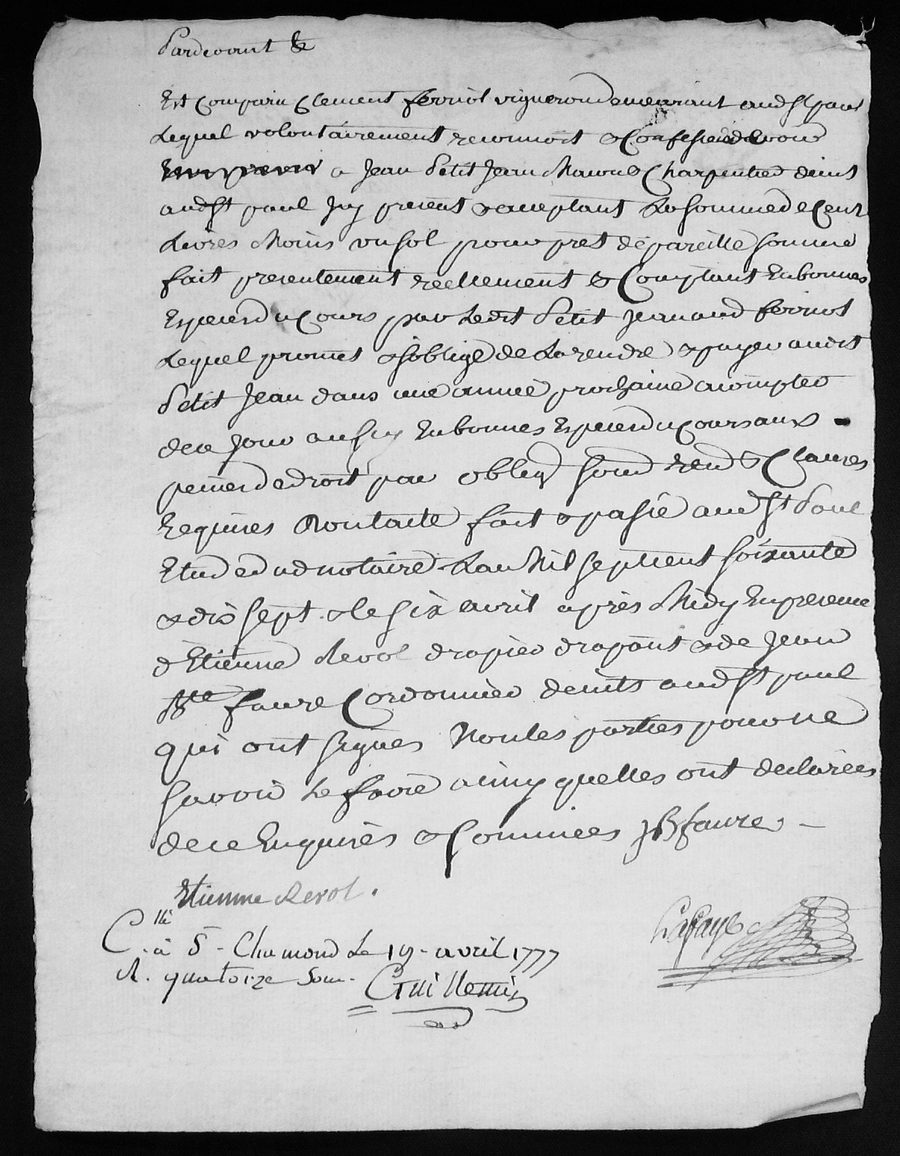 Pardevant &
Est Comparu Clement ferriol vigneron demeurant aud St paul
Lequel volontairement reconnoit & Confesse devoir
a Jean Petit Jean Charpentier
aud St paul Icy present & acceptant La somme de Cent
Livres Moins un sol pour prêt de pareille somme
fait presentement reellement & Comptant En bonnes
Especes du Cours par Ledit Petit Jean aud ferriol
Lequel promet & soblige de La rendre & payer audit
Petit Jean dans une année prochaine a compter
de ce Jour aussy En bonnes Especes du Cours aux
peines de droit par oblig Soum renon & Clauses
Requises Montaite fait & passé aud St Paul
Etude du notaire Lan Mil sept cent soixante
& dix sept & le six avril après Midy En presence
d'Etienne Revol drapier drapant & de Jean
Bte faure Cordonnier aud St paul
qui ont signés Non les parties pour ne
savoir Le faire ainsy quelles ont declarées
de ce Enquises & Sommées JB faure
Etienne Revol.
C.llé à St - Chamond Le 19 - avril 1777
R. quatorze sous. Guillemin